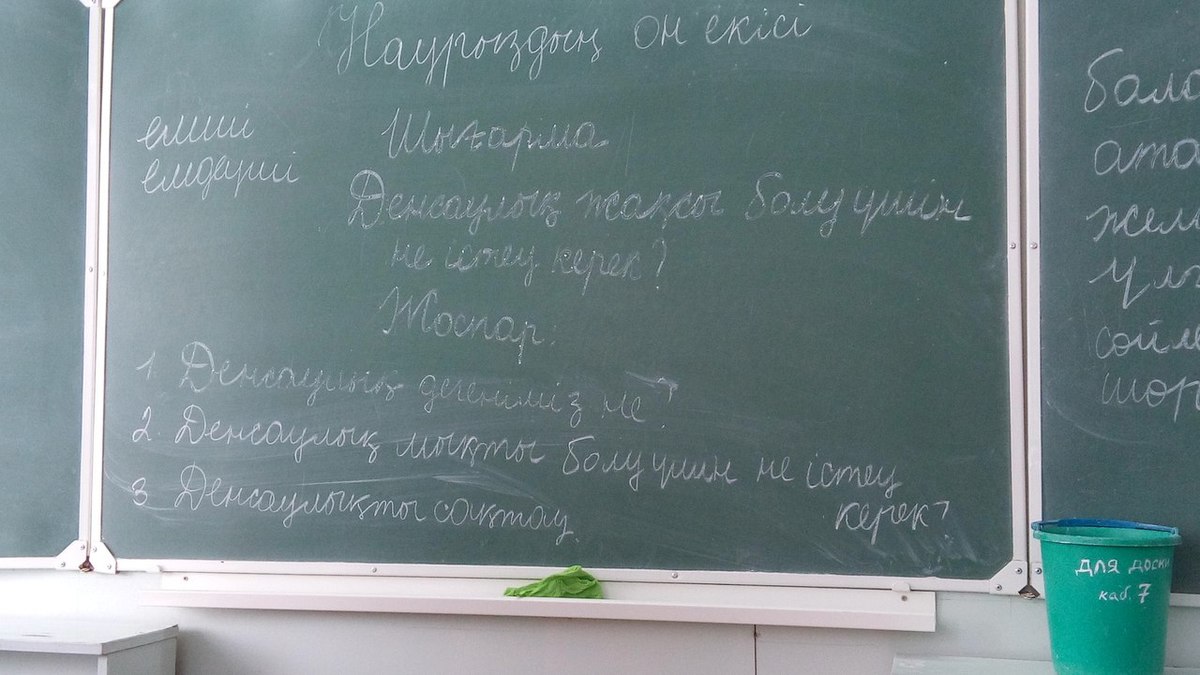 Наурыздың он екісі
емші
емдәрігі
Шығарма
Денсаулық жақсы болу үшін
не істеу керек?
Жоспар:
1 Денсаулық дегеніміз не?
2. Денсаулық мықты болу үшін не істеу
керек?
3 Денсаулықты сақтау.
для доски
каб. 7